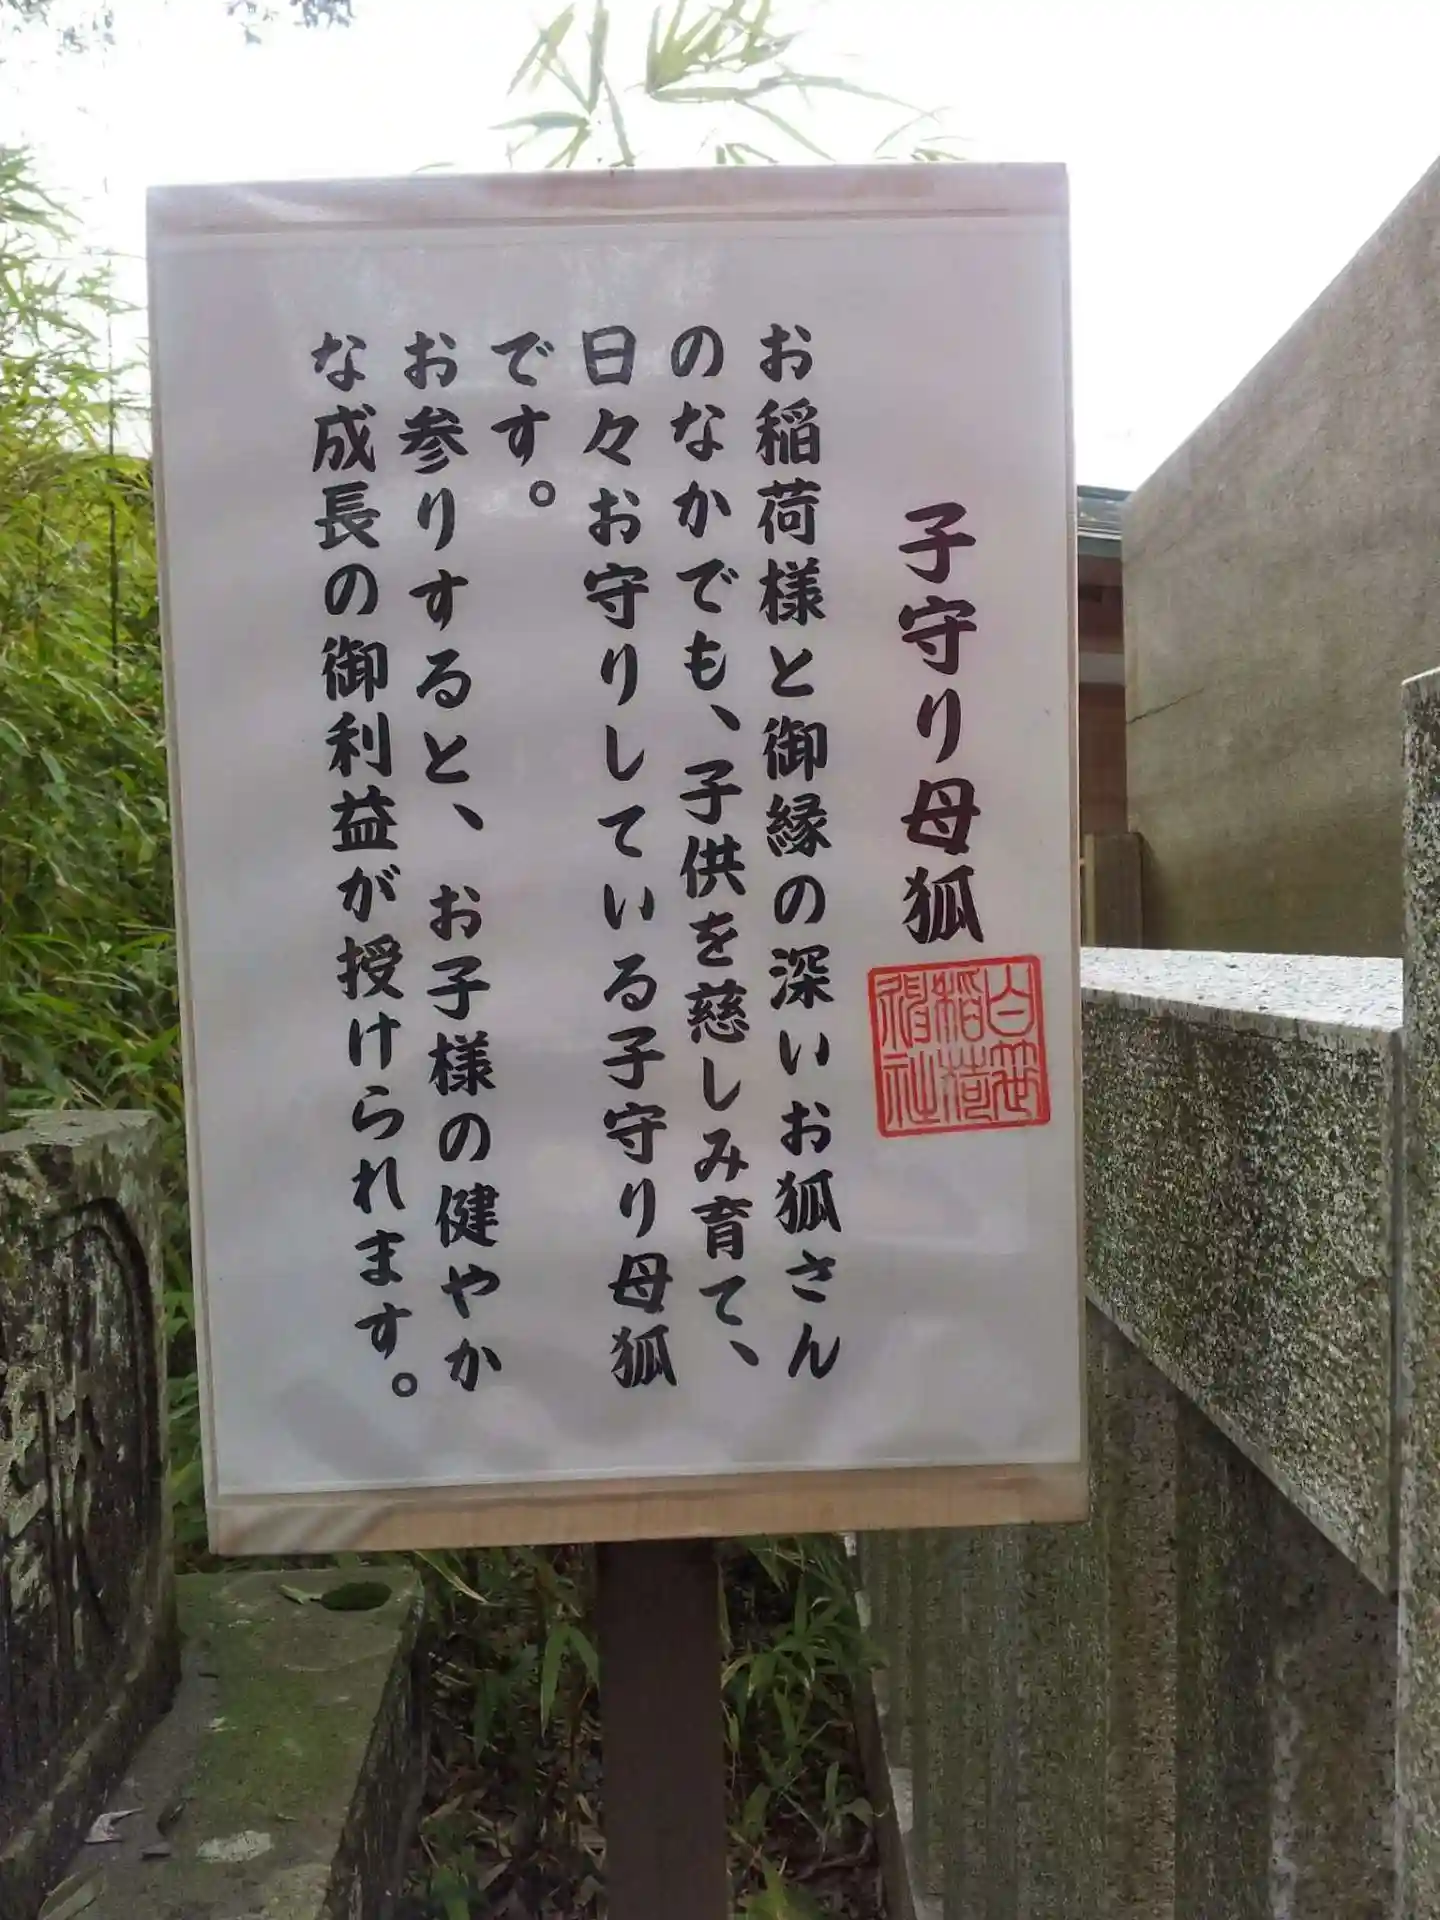 子守り母狐
白笹
稲荷
神社
お稲荷様と御縁の深いお狐さん
のなかでも、子供を慈しみ育て、
日々お守りしている子守り母狐
です。
お参りすると、お子様の健やか
な成長の御利益が授けられます。